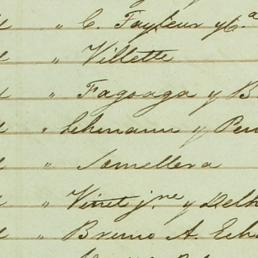 " C. Tayleur y Cª
" Villette
" Fagoaga y B
" Lehmann y Pen
" Somellera
" Vinet jne y Delh
" Bruno A. Ech